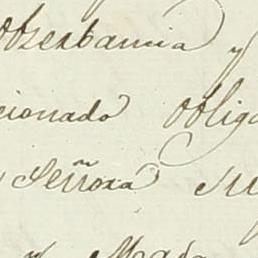 Obserbancia y
cionado oblig
Señora su
y Mada